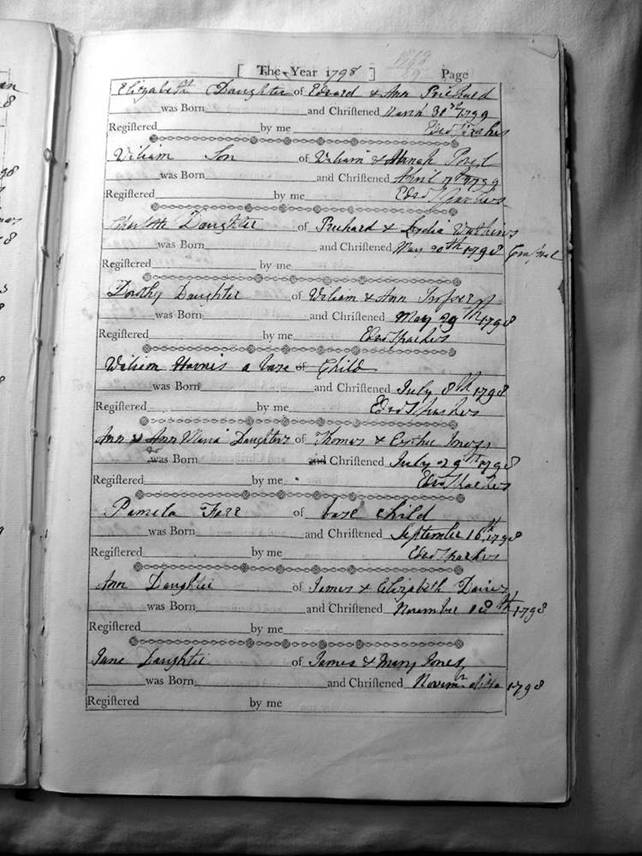 [ The Year 1798 ] Page
Elizabeth Daughter of Edward & Ann Prichard
was Born and Christened March 31st 1799
Registered by me Edwd Sparkes
William Son of William & Hannah
was Born and Christened April 7th 1799
Registered by me Edwd Sparkes
Charlotte Daughter of Richard & Lydia Watkins
was Born and Christened May 20th 1798
Registered by me
Dorothy Daughter of William & Ann
was Born and Christened May 29th 1798
Registered by me Edwd Sparkes
William Harris a base of Child
was Born and Christened July 8th 1798
Registered by me Edwd Sparkes
Ann & Ann Maria Daughters of Thomas & Jones
was Born and Christened July 29th 1798
Registered by me Edwd Sparkes
Pamela Farr of base child
was Born and Christened September 16th 1798
Registered by me Edwd Sparkes
Ann Daughter of James & Elizabeth Davies
was Born and Christened November 18th 1798
Registered by me
Jane Daughter of James & Mary Jones
was Born and Christened Novemr ditto 1798
Registered by me